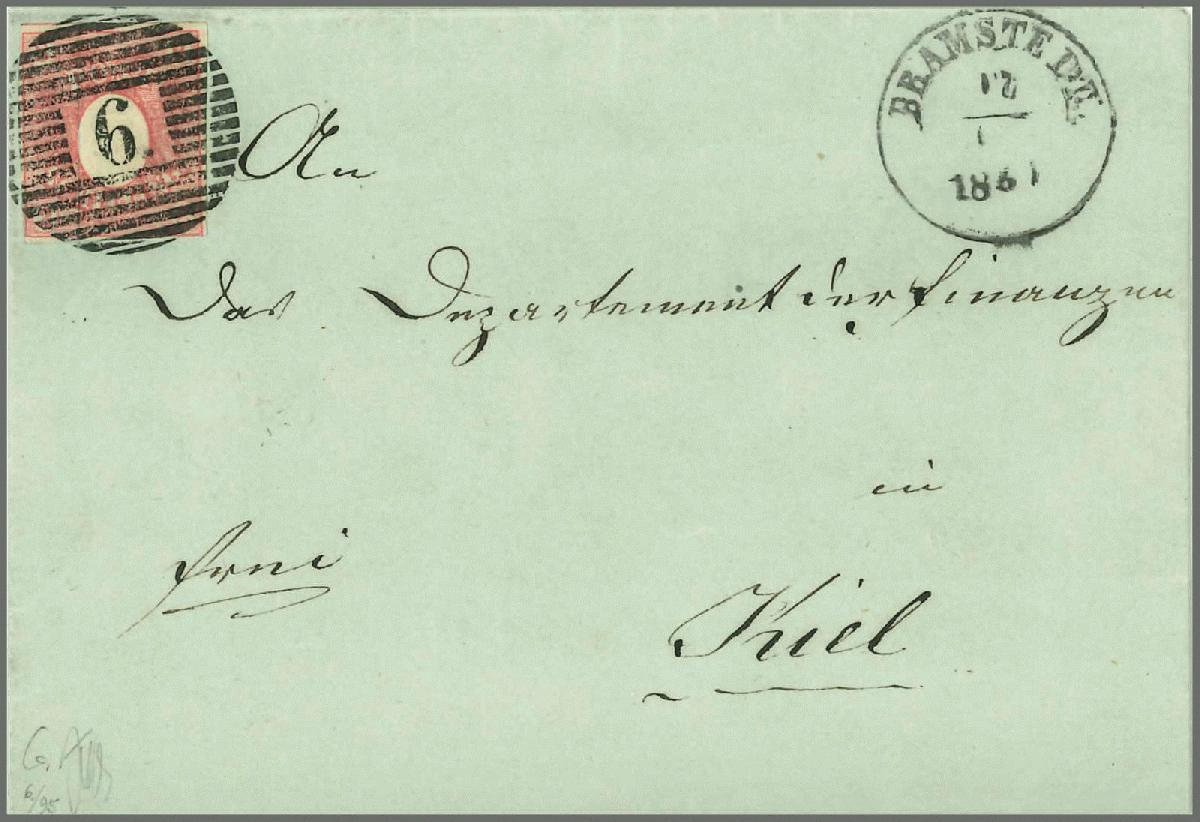 6
BRAMSTEDT
12
1
186
An
Das Departement der Finanzen
in
frei
Kiel
6/95